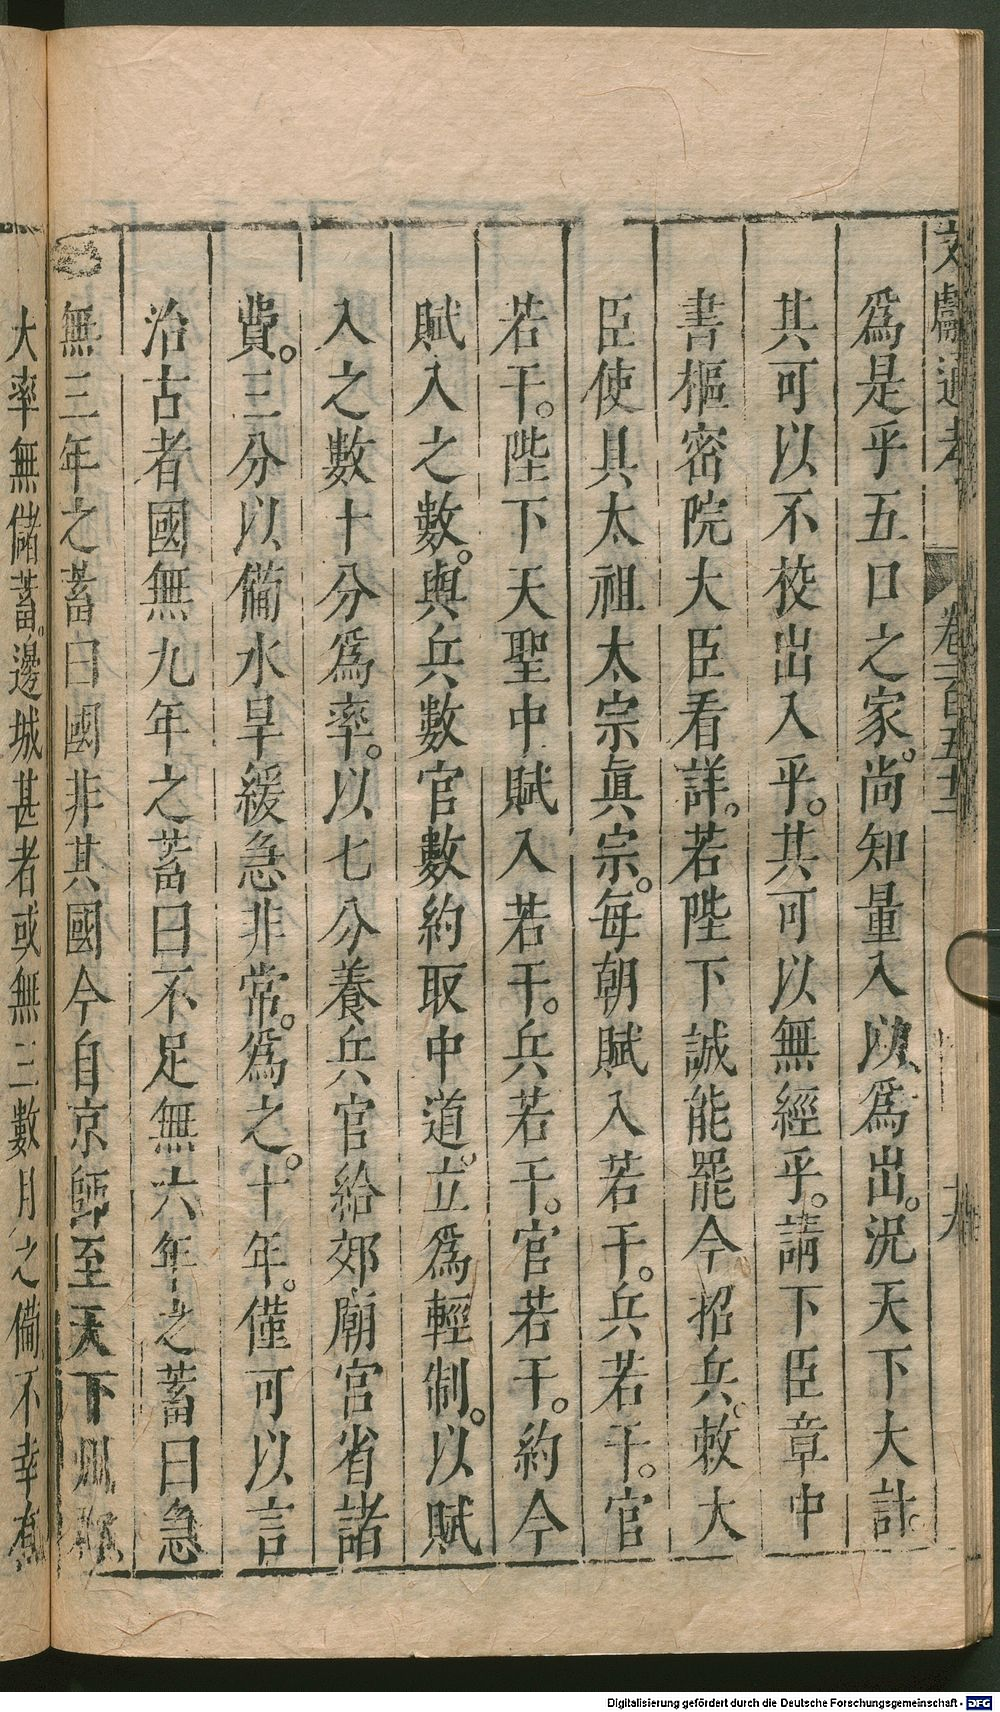 文獻通考
卷一百五十二
十九
爲是乎五口之家。尚知量入以爲出。況天下大計。
其可以不挍出入乎。其可以無經乎。請下臣章中
書樞密院大臣看詳。若陛下誠能罷今招兵。敕大
臣使具太祖太宗眞宗。每朝賦入若干。兵若干。官
若干。陛下天聖中賦入若干。兵若干。官若干。約今
賦入之數。與兵數官數約取中道。立爲輕制。以賦
入之數十分爲率。以七分養兵官給郊廟宮省諸
費。三分以備水旱緩急非常。爲之。十年。僅可以言
治古者國無九年之蓄曰不足無六年之蓄曰急
無三年之蓄曰國非其國今自京師至天下州
大率無儲蓄。邊城甚者或無三數月之備不幸有
Digitalisierung gefördert durch die Deutsche Forschungsgemeinschaft - DFG